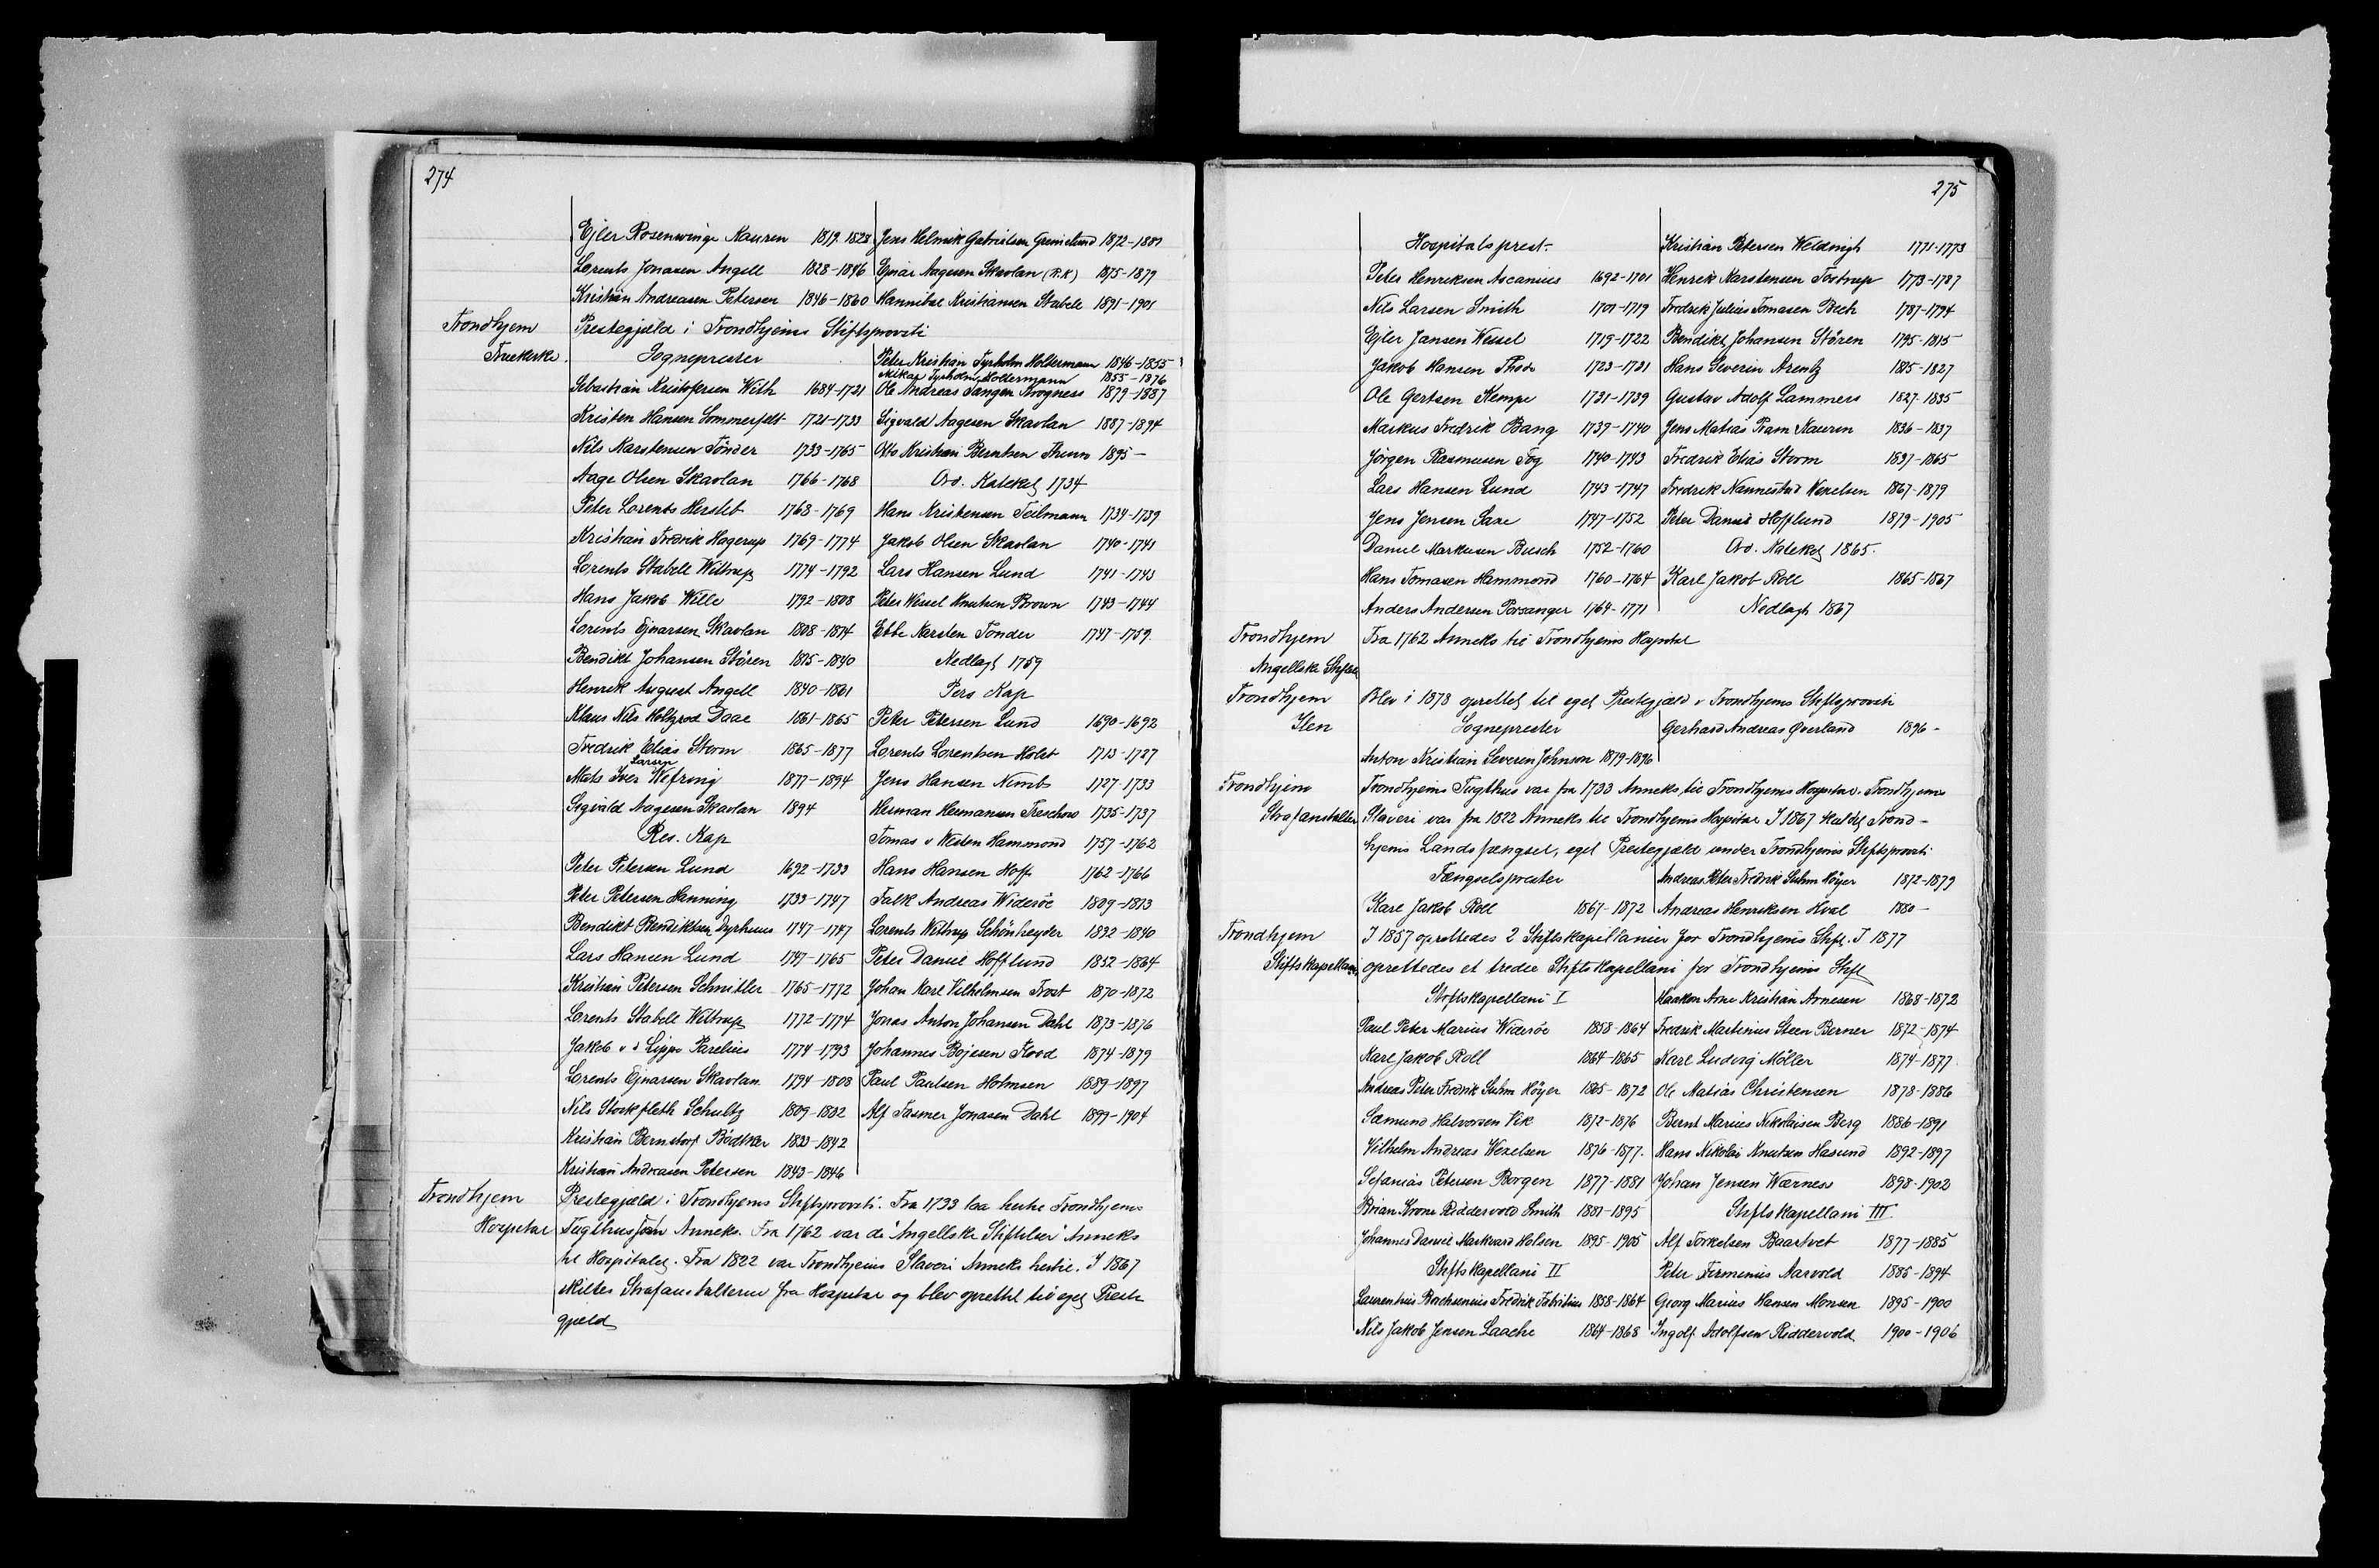 274
Ejler Rosenvinge Kauren 1819-1828
Lorents Jonasen Angell 1828-1846
Kristian Andreasen Petersen 1846-1860
Jens Helmik Gabrielsen 1872-1881
Ejnar Aagesen Skavlan (R.K) 1875-1879
Hannibal Kristiansen Stabell 1891-1901
Trondhjem Prestegjæld i Trondhjems Stiftsprovsti
Fruekirke.
Sogneprester
Sebastian Kristofersen With 1684-1721
Kristen Hansen Sommerfelt 1721-1733
Nils Karstensen Tönder 1733-1765
Aage Olsen Skavlan 1766-1768
Peter Lorents Hersleb 1768-1769
Kristian Fredrik Hagerup 1769-1774
Lorents Stabell Wittrup 1774-1792
Hans Jakob Wille 1792-1808
Lorents Ejnarsen Skavlan 1808-1814
Bendikt Johansen Stören 1815-1840
Henrik August Angell 1840-1861
Klaus Nils Holtzrod Daae 1861-1865
Fredrik Elias Storm 1865-1877
Mats Iver Larsen Wefring 1877-1894
Sigvald Aagesen Skavlan 1894
Res. Kap
Peter Petersen Lund 1692-1733
Peter Petersen Henning 1733-1747
Bendikt Bendiktsen Dyrhuus 1747-1747
Lars Hansen Lund 1747-1765
Kristian Petersen Schnitler 1765-1772
Lorents Stabell Wittrup 1772-1774
Jakob v d Lippe Parelius 1774-1793
Lorents Ejnarsen Skavlan 1794-1808
Nils Stockfleth Schultz 1809-1832
Kristian Bernstorf Bödtker 1833-1842
Kristian Andreasen Petersen 1843-1846
Peter Kristian Tyrholm Holtermann 1846-1855
Mikal Tyrholm Holtermann 1855-1876
Ole Andreas Tangen Krogness 1879-1887
Sigvald Aagesen Skavlan 1887-1894
Otto Kristian Berntsen Thuun 1895-
Ord. Kateket 1734
Hans Kristensen Teilmann 1734-1739
Jakob Olsen Skavlan 1740-1741
Lars Hansen Lund 1741-1743
Peter Wessel Knutsen Brown 1743-1744
Ebbe Karsten Tonder 1747-1759
Nedlagt 1759
Pers Kap
Peter Petersen Lund 1690-1692
Lorents Lorentsen Holst 1713-1727
Jens Hansen Nimb 1727-1733
Herman Hermansen Treschow 1735-1737
Tomas v Westen Hammond 1757-1762
Hans Hansen Hoff 1762-1766
Falk Andreas Wideröe 1809-1813
Lorents Wittrup Schönheyder 1832-1840
Peter Daniel Hofflund 1852-1864
Johan Karl Vilhelmsen Trost 1870-1872
Jonas Anton Johansen Dahl 1873-1876
Johannes Bojesen Flood 1874-1879
Paul Paulsen Holmsen 1889-1897
Alf Fasmer Jonasen Dahl 1899-1904
Trondhjem Prestegjæld i Trondhjems Stiftsprovsti. Fra 1733 laa hertil Trondhjems
Hospital Tugthus som Anneks. Fra 1762 var de Angellske Stiftelser Anneks
til Hospitalet. Fra 1822 var Trondhjems Slaveri Anneks hertil. I 1867
skiltes Strafanstalterne fra Hospital og blev oprettet til eget Preste
gjeld
275
Hospitalsprest.
Peter Henriksen Ascanius 1692-1701
Nils Larsen Smith 1701-1719
Ejler Jansen Wessel 1719-1722
Jakob Hansen Thode 1723-1731
Ole Gertsen Kempe 1731-1739
Markus Fredrik Bang 1739-1740
Jörgen Rasmusen Fog 1740-1743
Lars Hansen Lund 1743-1747
Jens Jensen Saxe 1747-1752
Daniel Markusen Busch 1752-1760
Hans Tomasen Hammond 1760-1764
Anders Andersen Porsanger 1764-1771
Kristian Petersen Weldingh 1771-1773
Henrik Karstensen Tostrup 1773-1787
Fredrik Julius Tomasen Bech 1787-1794
Bendikt Johansen Stören 1795-1815
Hans Severin Arentz 1825-1827
Gustav Adolf Lammers 1827-1835
Jens Matias Pram Kaurin 1836-1837
Fredrik Elias Storm 1837-1865
Fredrik Nannestad Wexelsen 1867-1879
Peter Daniel Hofflund 1879-1905
Ord. Kateket 1865.
Karl Jakob Roll 1865-1867
Nedlagt 1867
Trondhjem Fra 1762 Anneks til Trondhjems Hospital
Angellske Stiftels
Trondhjem Blev i 1878 oprettet til eget Prestegjæld i Trondhjems Stiftsprovsti
Ilen Sogneprester
Anton Kristian Severin Johnson 1879-1896
Gerhard Andreas Qverland 1896-
Trondhjem Trondhjems Tugthus var fra 1733 Anneks til Trondhjems Hospital. Trondhjems
Strafanstalter Slaveri var fra 1822 Anneks til Trondhjems Hospital I 1867 kaldet Trond-
hjems Landsfængsel, eget Prestegjæld under Trondhjems Stiftsprovsti
Fængselsprester
Karl Jakob Roll 1867-1872
Andreas Peter Fredrik Suhm Höyer 1872-1879
Andreas Henriksen Hval 1880-
Trondhjem I 1857 oprettedes 2 Stiftskapellanier for Trondhjems Stift. I 1877
Stiftskapellani oprettedes et tredie Stiftskapellani for Trondhjems Stift
Stiftskapellani I
Paul Peter Marius Wideröe 1858-1864
Karl Jakob Roll 1864-1865
Andreas Peter Fredrik Suhm Höyer 1865-1872
Sæmund Halvorsen Vik 1872-1876
Vilhelm Andreas Wexelsen 1876-1877.
Sefanias Petersen Borgen 1877-1881
Brian Krone Riddervold Smith 1881-1895
Johannes Daniel Markvard Holsen 1895-1905
Stiftskapellani II
Laurentius Borchsenius Fredrik Fabritius 1858-1864
Nils Jakob Jensen Laache 1864-1868
Haakon Arne Kristian Arnesen 1868-1872
Fredrik Martinius Steen Berner 1872-1874
Karl Ludvig Möller 1874-1877
Ole Matias Christensen 1878-1886
Bernt Marius Nikolaisen Berg 1886-1891
Hans Nikolai Knutsen Hasund 1892-1897
Johan Jensen Wærness 1898-1902
Stiftskapellani III
Alf Torkelsen Baartvet 1877-1885
Peter Firminius Aarvold 1885-1894
Georg Marius Hansen Monsen 1895-1900
Ingolf Adolfsen Riddervold 1900-1906